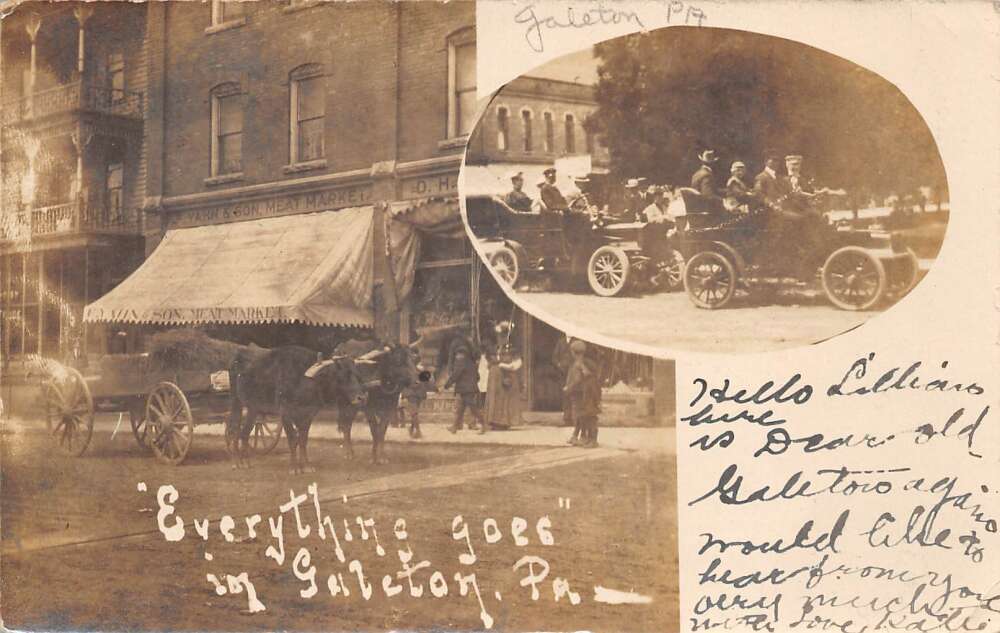 Galeton PA
VAHN & SON. MEAT MARKET
O. H
VAHN & SON. MEAT MARKET
"Everything goes"
in Galeton, Pa
Hello Lillian
here
is Dear old
Galeton again
would like to
hear from you
very much
with love, Katie